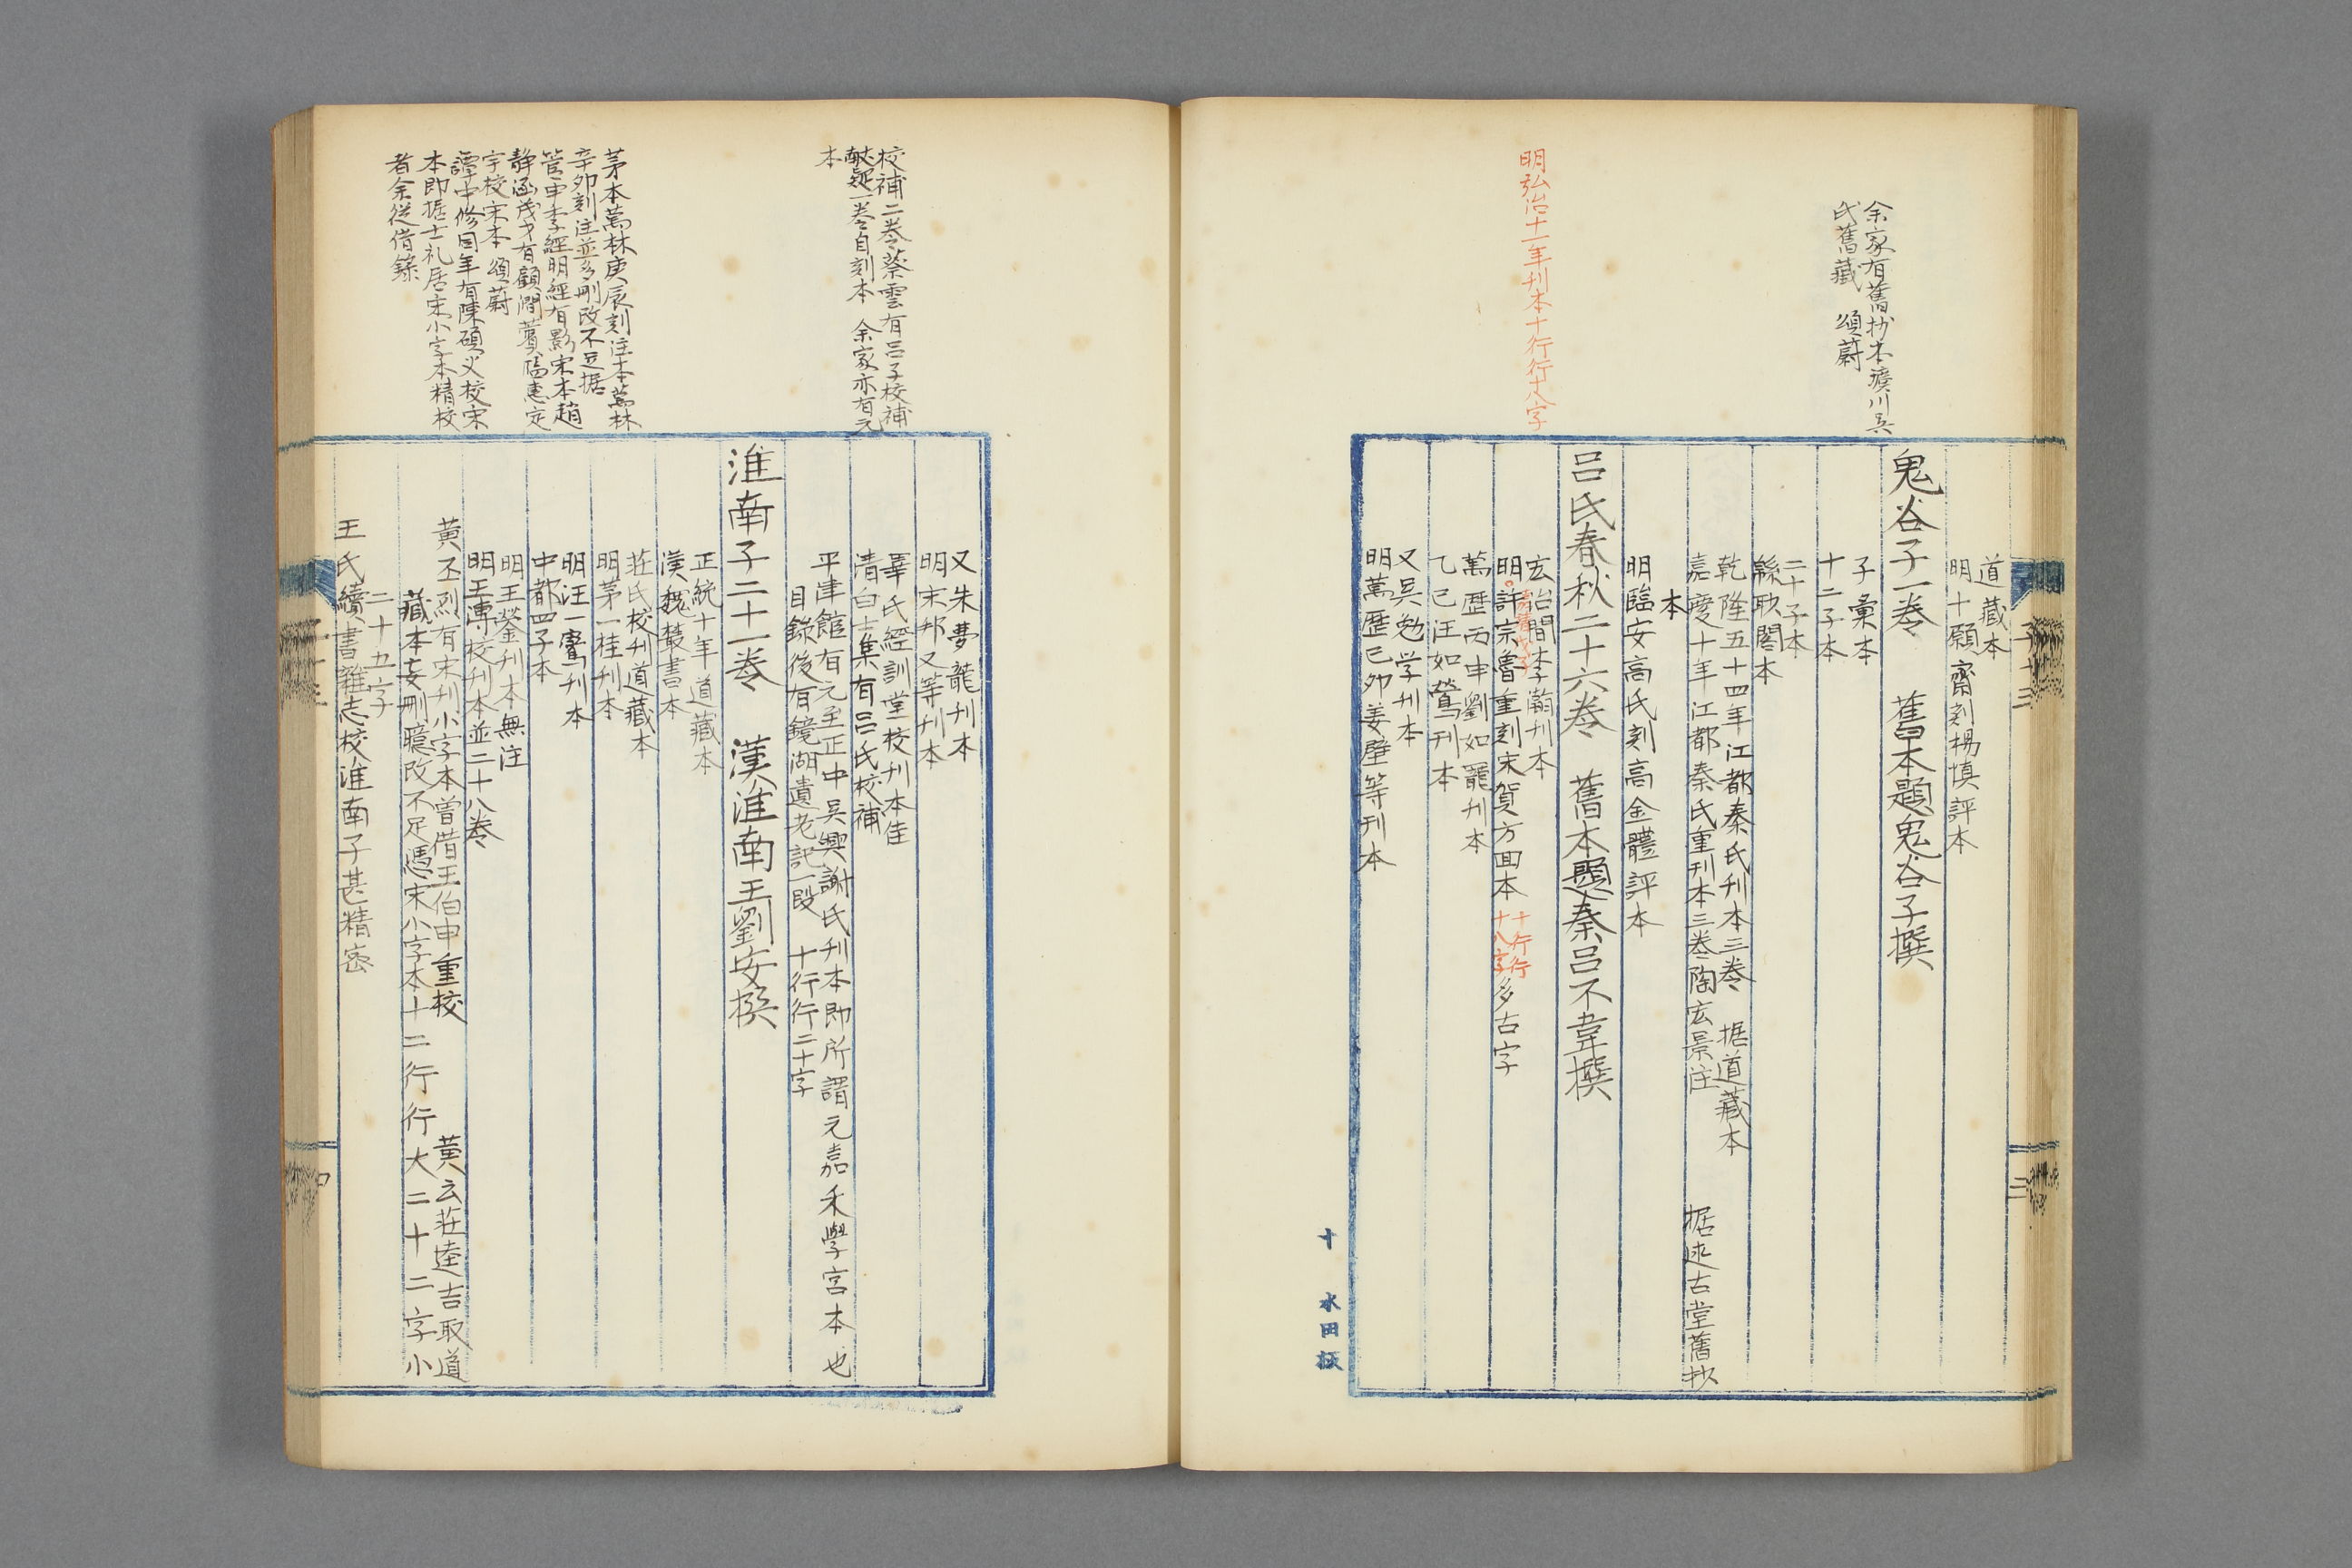 余家有舊抄本璜川吳
氏舊藏　頌蔚
明弘治十一年刊本十行行十八字
道藏本
明十願齋刻楊慎評本
鬼谷子一卷　舊本題鬼谷子撰
子彙本
十二子本
二十子本
緜眇閣本
乾隆五十四年江都秦氏刊本三卷　据道藏本
嘉慶十年江都秦氏重刊本三卷陶宏景注　据述古堂舊抄
本
明臨安高氏刻高金體評本
呂氏春秋二十六卷　舊本題秦呂不韋撰
宏治間李瀚刊本
明許宗魯重刻宋賀方回本
十行行
十八字
多古字
萬歷丙申劉如寵刊本
乙巳汪如鸞刊本
又吳勉学刊本
明萬歷己卯姜璧等刊本
子十三
三
十
水田板
校補二卷蔡雲有呂子校補
獻疑一卷自刻本　余家亦有元
本
茅本萬林庚辰刻注本萬林
辛卯刻注並多刪改不足据
管申季經明經有影宋本趙
靜涵茂才有顧澗薲臨惠定
宇校宋本　頌蔚
譚中修同年有陳碩父校宋
本即据士礼居宋小字本精校
者余从借錄
又朱夢龍刊本
明宋邦乂等刊本
畢氏經訓堂校刊本佳
清白士集有呂氏校補
平津館有元至正中吳興謝氏刊本即所謂元嘉禾學宮本也
目錄後有鏡湖遺老記一段　十行行二十字
淮南子二十一卷　漢淮南王劉安撰
正統十年道藏本
漢魏叢書本
莊氏校刊道藏本
明茅一桂刊本
明汪一鸞刊本
中都四子本
明王鎣刊本無注
明王溥校刊本並二十八卷
黃丕烈有宋刊小字本曾借王伯申重校　黃云莊逵吉取道
藏本妄刪臆改不足憑宋小字本十二行行大二十二字小
二十五字
王氏續書雜志校淮南子甚精密